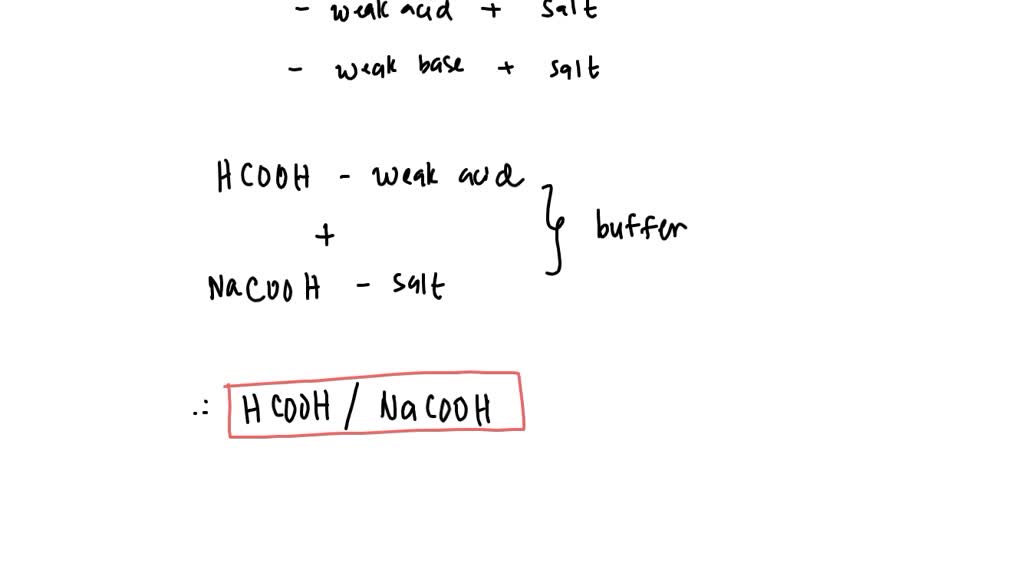 - weak acid + salt
- weak base + salt
HCOOH - weak acid
+
NaCOOH - salt
buffer
∴ HCOOH / NaCOOH